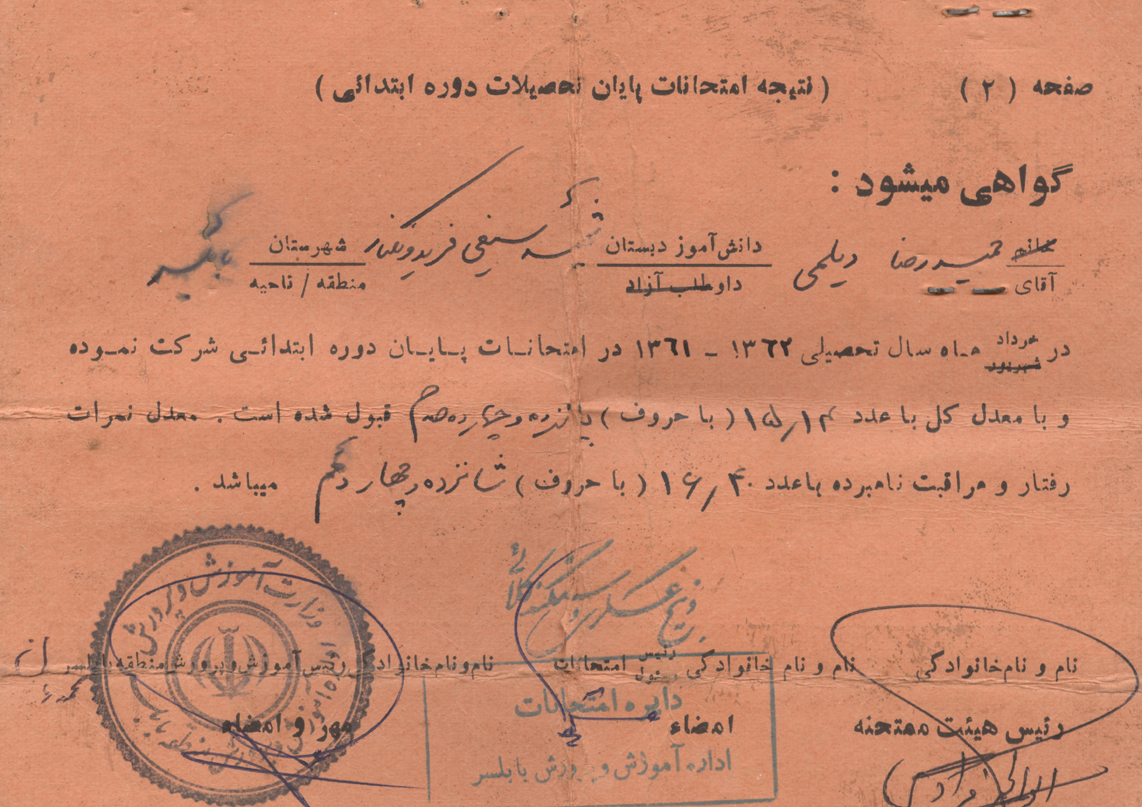 صفحه ( ۲ ) ( نتیجه امتحانات پایان تحصیلات دوره ابتدائی )
گواهی میشود :
آقای حمیدرضا دیلمی دانش‌آموز دبستان شهید سیفی فریدونکنار شهرستان بابلسر
داوطلب آزاد منطقه / ناحیه
در خرداد شهریور ماه سال تحصیلی ۱۳۶۲ - ۱۳۶۱ در امتحانات پایان دوره ابتدائی شرکت نموده
و با معدل کل با عدد ۱۵/۱۴ ( با حروف ) پانزده و چهارده صدم قبول شده است . معدل نمرات
رفتار و مراقبت نامبرده باعدد ۱۶/۴۰ ( با حروف ) شانزده و چهار دهم میباشد .
وزارت آموزش و پرورش
نام و نام‌خانوادگی نام و نام خانوادگی رئیس مسئول امتحانات نام‌ونام‌خانوادگی‌رئیس‌آموزش‌وپرورش‌منطقه‌بابلسر
رئیس هیئت ممتحنه امضاء مهر و امضاء
دایره امتحانات
اداره آموزش و پرورش بابلسر